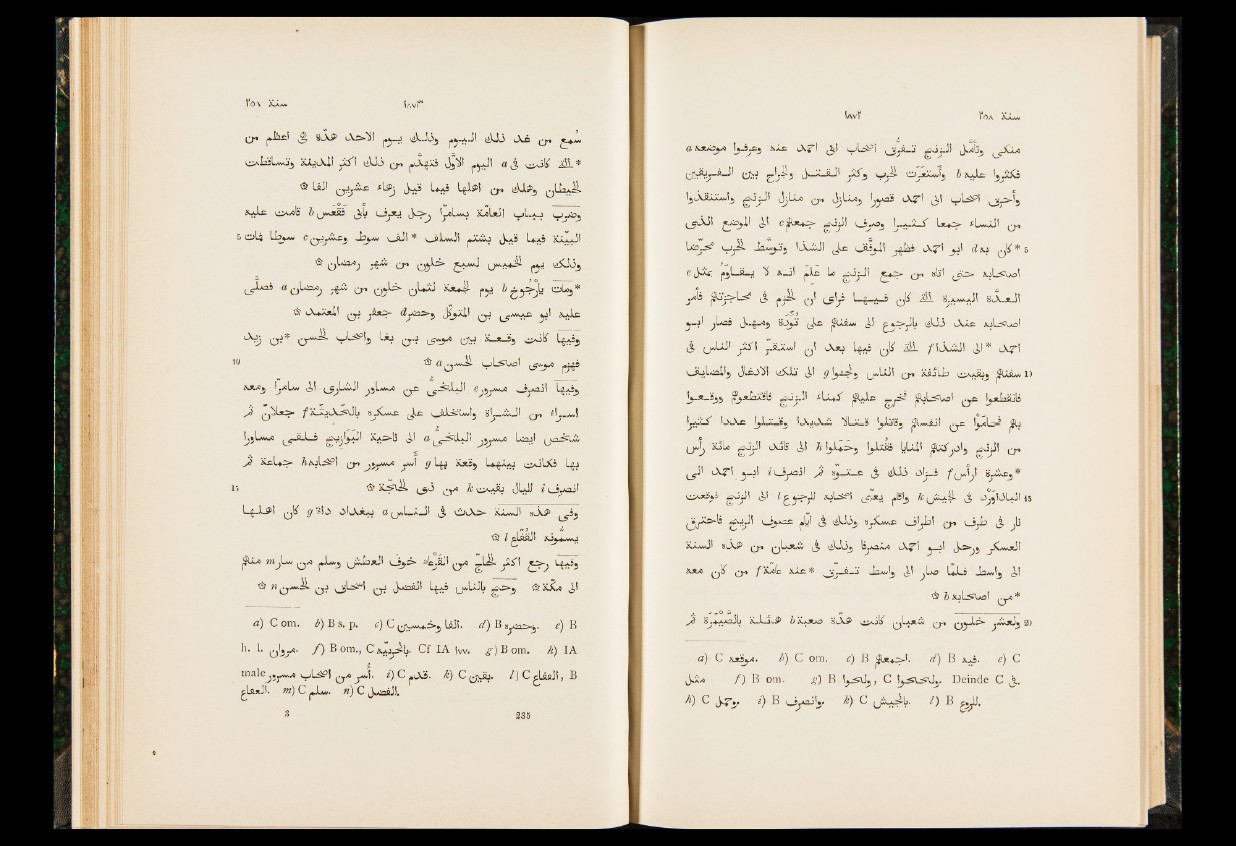 ١٨٧٢ سنة ٢٥٨
منكى وتأمّل الزنج تفرّق اصحاب ابى احمد عنه وعرفوا موضعه a
فكثروا عليه b واستعرت حرب وكثر القتل والجراح بين الفريقين
وأحرق اصحاب ابى احمد قصورا ومنازل من منازل الزنج واستنقذوا
من النساء جمعا كثيرا وصرف الزنج جمعهم c الى الموضع الذى
5 *كان به d ابو احمد فظهر الموفّق على الشذا وتوسّط الحرب محرّضا
اصحابه حتى اتاه من جمع الزنج ما علم انه لا يقاوم بمثل e
العدّة اليسيرة التى كان فيها فرأى ان الحزم فى محاجزتهم فأمر
اصحابه عند ذلك بالرجوع الى سفنهم على تؤدة ومهل فصار ابو
احمد *الى الشذا f التى كان فيها بعد ان استقرّ اكثر الناس فى
10 سفنهم وبقيت طائفة من الناس ولجوا g الى تلك الادغال والمضايق
فانقطعوا عن اصحابهم فخرج عليهم كمناء الزنج فاقتطعوهم ووقعوا
بهم فحاموا عن انفسهم وقاتلوا قتالا شديدا وقتلوا عددا كثيرا
من الزنج وادركتهم المنايا فقُتلوا وحملوا h الى قائد الزنج مائة رأس
*وعشرة ارؤس f فزاد ذلك فى عتوّه ثم انصرف i ابو احمد الى
15 الباذاورد فى الجيش k واقام يعبّى اصحابه للرجوع l الى الزنج فوقعت
نار فى طرف من اطراف عسكره وذلك فى ايّام عصوف الريح فاحترق
العسكر ورحل ابو احمد منصرفا وذلك فى شعبان من هذه السنة
الى واسط فلمّا صار الى واسط تفرّق *عنه عامّة f من كان معه
*من اصحابه b ۞
20 ولعشر خلون من شعبان كانت هدّة صعبة b هائلة بالصَّيْمَرة ثم
a) C موقعه. b) C om. c) B اجمعهم. d) B فيه. e) C
مثل f) B om. g) B ولحوا, C ولحلحوا. Deinde C فى.
h) C وحمل. i) B وانصرف. k) C بالجيش. l) B للروع.
١٨٧٣ سنة ٢٥٨
سُمع من غد ذلك اليوم وذلك يوم الاحد هدّة فى اعظم من
*التى كانت فى a اليوم الاوّل فتهدّم من ذلك اكثر المدينة وتساقطت
الحيطان وهلك من اهلها فيما قيل زهاء عشرين الفا ۞
وضُرب بباب العامّة بسامرّا رجل يعرف بأبى فَقْعَس b قامت عليه
5 البيّنة فيما قيل بشتم السلف *الف سوط وعشرين c سوطا فمات
وذلك يوم الخميس لسبع خلون من شهر رمضان ۞
*ومات يارْجُوخ b يوم الجمعة لثمان خلون من شهر رمضان a فصلّى
عليه ابو عيسى بن المتوكّل وحضره d جعفر بن المعتمد ۞
وفيها كانت وقعة بين موسى بن بغا واصحاب الحسن *بن زيد
10 فهزم موسى اصحاب الحسن a ۞
وفيها انصرف مسرور e البلخىّ عن مساور الشارى الى سامرّا ومعه
اسراء من الشراة واستخلف على عسكره بالحَديثة f جعلان ثم
شخص ايضا مسرور البلخىّ a الى ناحية البَوَازيج فلقى مساورا
بها فكانت بينهما وقعة بها g أسر مسرور من اصحابه h جماعة ثم
15 انصرف i لليال بقيت k من ذى الحجّة ۞
وفى هذه السنة حدث فى الناس a ببغداد داء g كان اهلها
يسمّونه القُفّاع l ۞
وفيها رجع اكثر الحاجّ من القَرْعاء خوف العطش وسلم من سار m منهم
الى مكّة ۞ وحجّ بالناس فيها الفضل بن اسحاق بن الحسن n ۞
a) C om. b) B s. p. c) C الفا وخمسين. d) B وحضره. e) B
h. l. مروان. f) B om., C بالحربيّة. Cf IA ١٧٧. g) B om. h) IA
male أسر من اصحاب مسرور. i) C قدم. k) C بقين. l) C الفقاع, B
العفاع. m) C سلم. n) C الفضل.
3 235